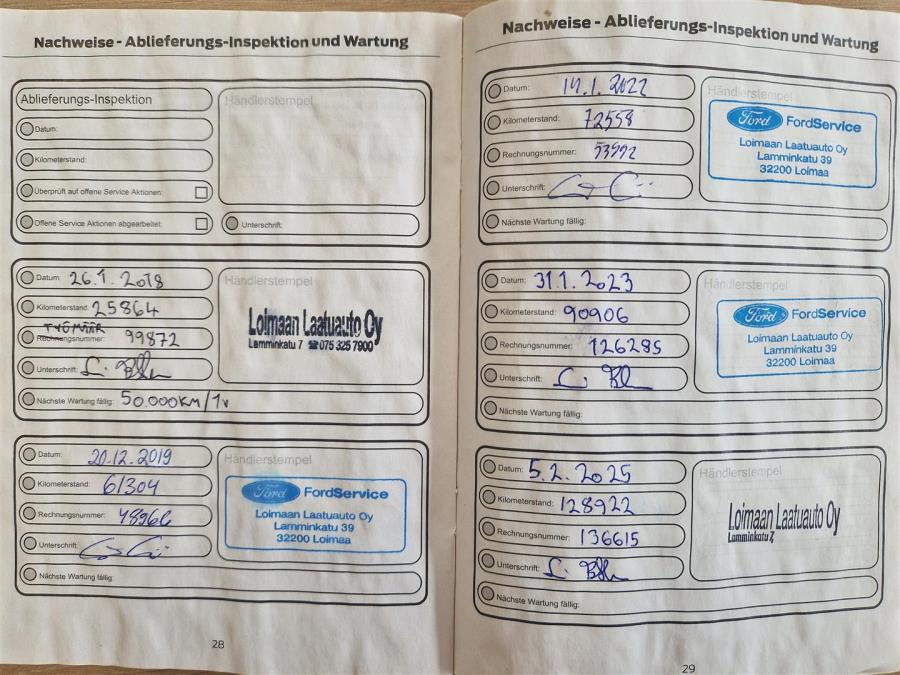 Nachweise - Ablieferungs-Inspektion und Wartung
Ablieferungs-Inspektion
Datum:
Kilometerstand:
Überprüft auf offene Service Aktionen:
Offene Service Aktionen abgearbeitet:
Händlerstempel
Unterschrift:
Datum: 26.1.2018
Kilometerstand: 25864
TYÖMÄÄR
Rechnungsnummer: 99872
Unterschrift:
Nächste Wartung fällig: 50.000KM/1v
Händlerstempel
Loimaan Laatuauto Oy
Lamminkatu 7 ☎075 325 7900
Datum: 20.12.2019
Kilometerstand: 61304
Rechnungsnummer: 48966
Unterschrift:
Nächste Wartung fällig:
Händlerstempel
Ford FordService
Loimaan Laatuauto Oy
Lamminkatu 39
32200 Loimaa
28
Nachweise - Ablieferungs-Inspektion und Wartung
Datum: 14.1.2022
Kilometerstand: 72558
Rechnungsnummer: 53992
Unterschrift:
Nächste Wartung fällig:
Händlerstempel
Ford FordService
Loimaan Laatuauto Oy
Lamminkatu 39
32200 Loimaa
Datum: 31.1.2023
Kilometerstand: 90906
Rechnungsnummer: 126285
Unterschrift:
Nächste Wartung fällig:
Händlerstempel
Ford FordService
Loimaan Laatuauto Oy
Lamminkatu 39
32200 Loimaa
Datum: 5.2.2025
Kilometerstand: 128922
Rechnungsnummer: 136615
Unterschrift:
Nächste Wartung fällig:
Händlerstempel
Loimaan Laatuauto Oy
Lamminkatu 7,
29